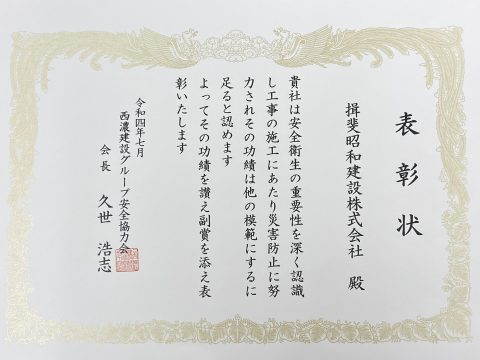 表彰状
揖斐昭和建設株式会社 殿
貴社は安全衛生の重要性を深く認識
し工事の施工にあたり災害防止に努
力されその功績は他の模範にするに
足ると認めます
よってその功績を讃え副賞を添え表
彰いたします
令和四年七月
西濃建設グループ安全協力会
会長 久世 浩志